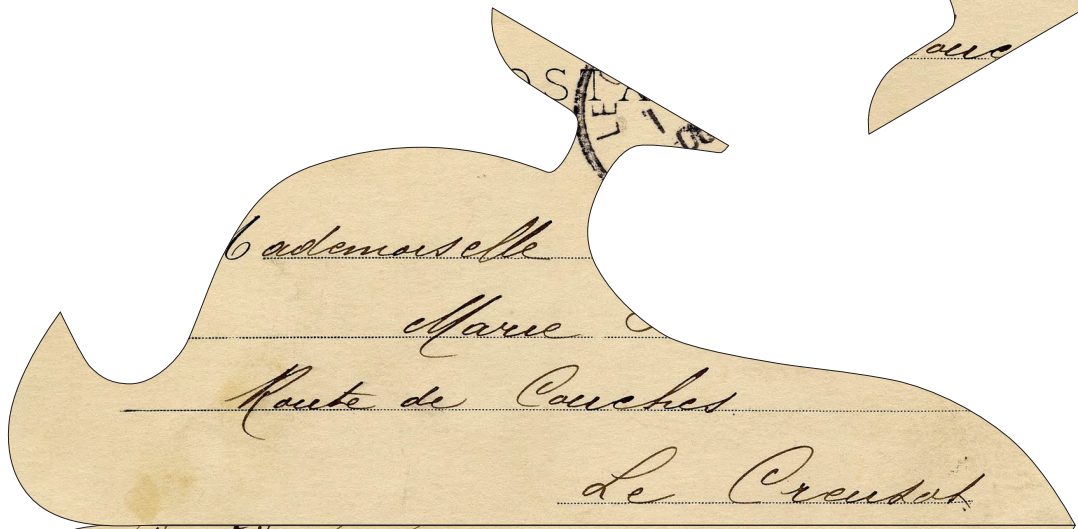 Mademoiselle
Marie
Route de Couches
Le Creusot